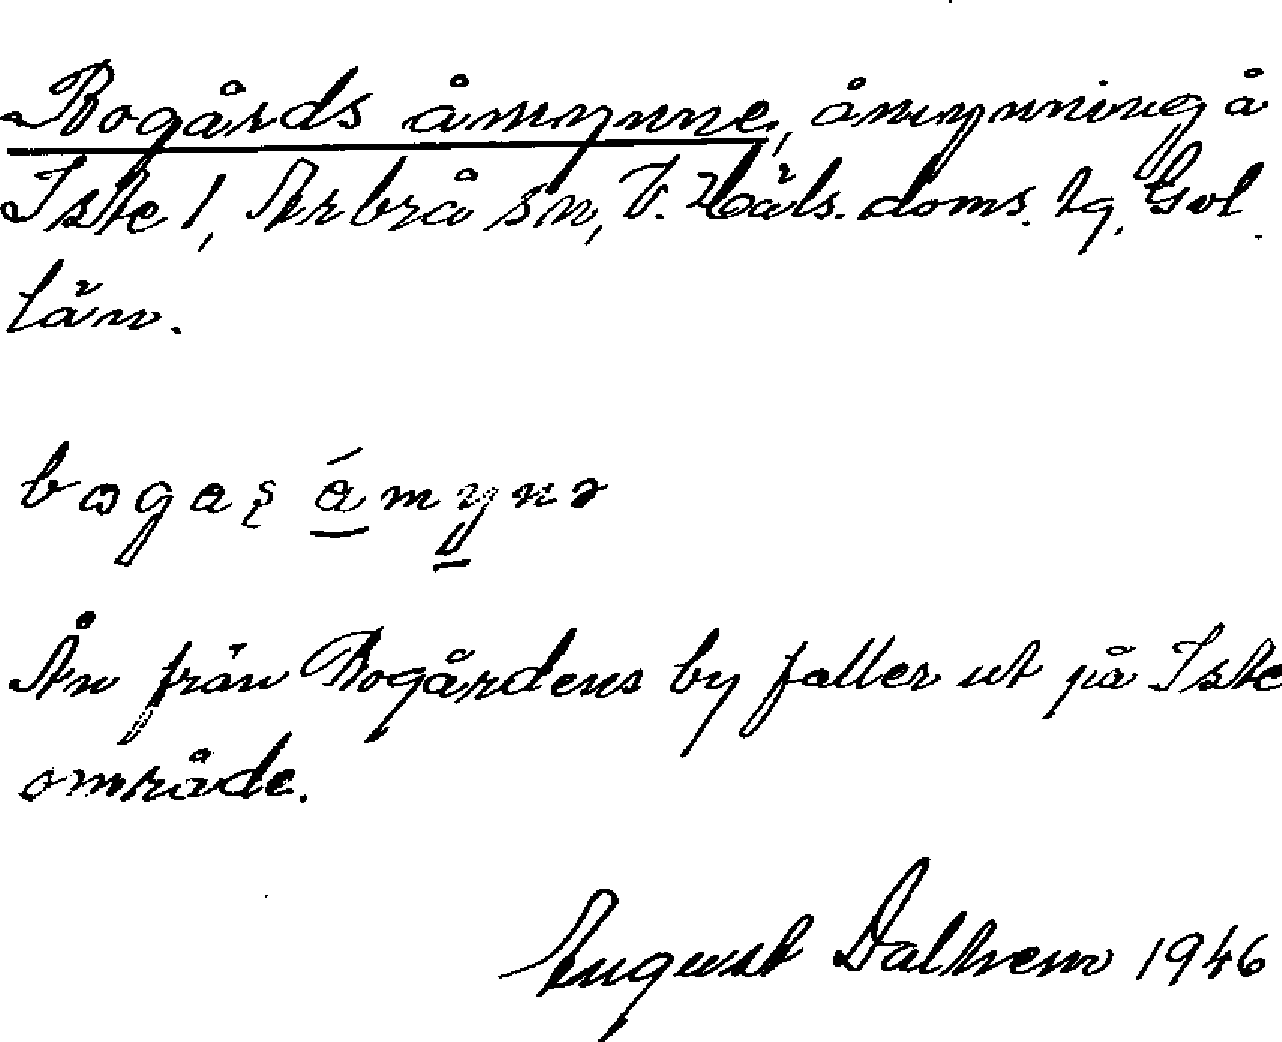 Bogårds åmynne, åmynning å
Iste 1, Arbrå sn, V. Häls. doms. lg. Gvl.
län.
bogaş ámynə
Ån från Bogårdens by faller ut på Iste
område.
August Dalhem 1946